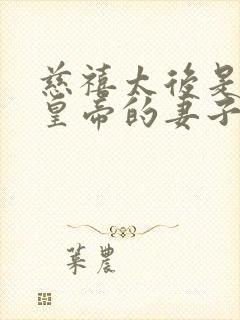 慈禧太後是
皇帝的妻子
葉農